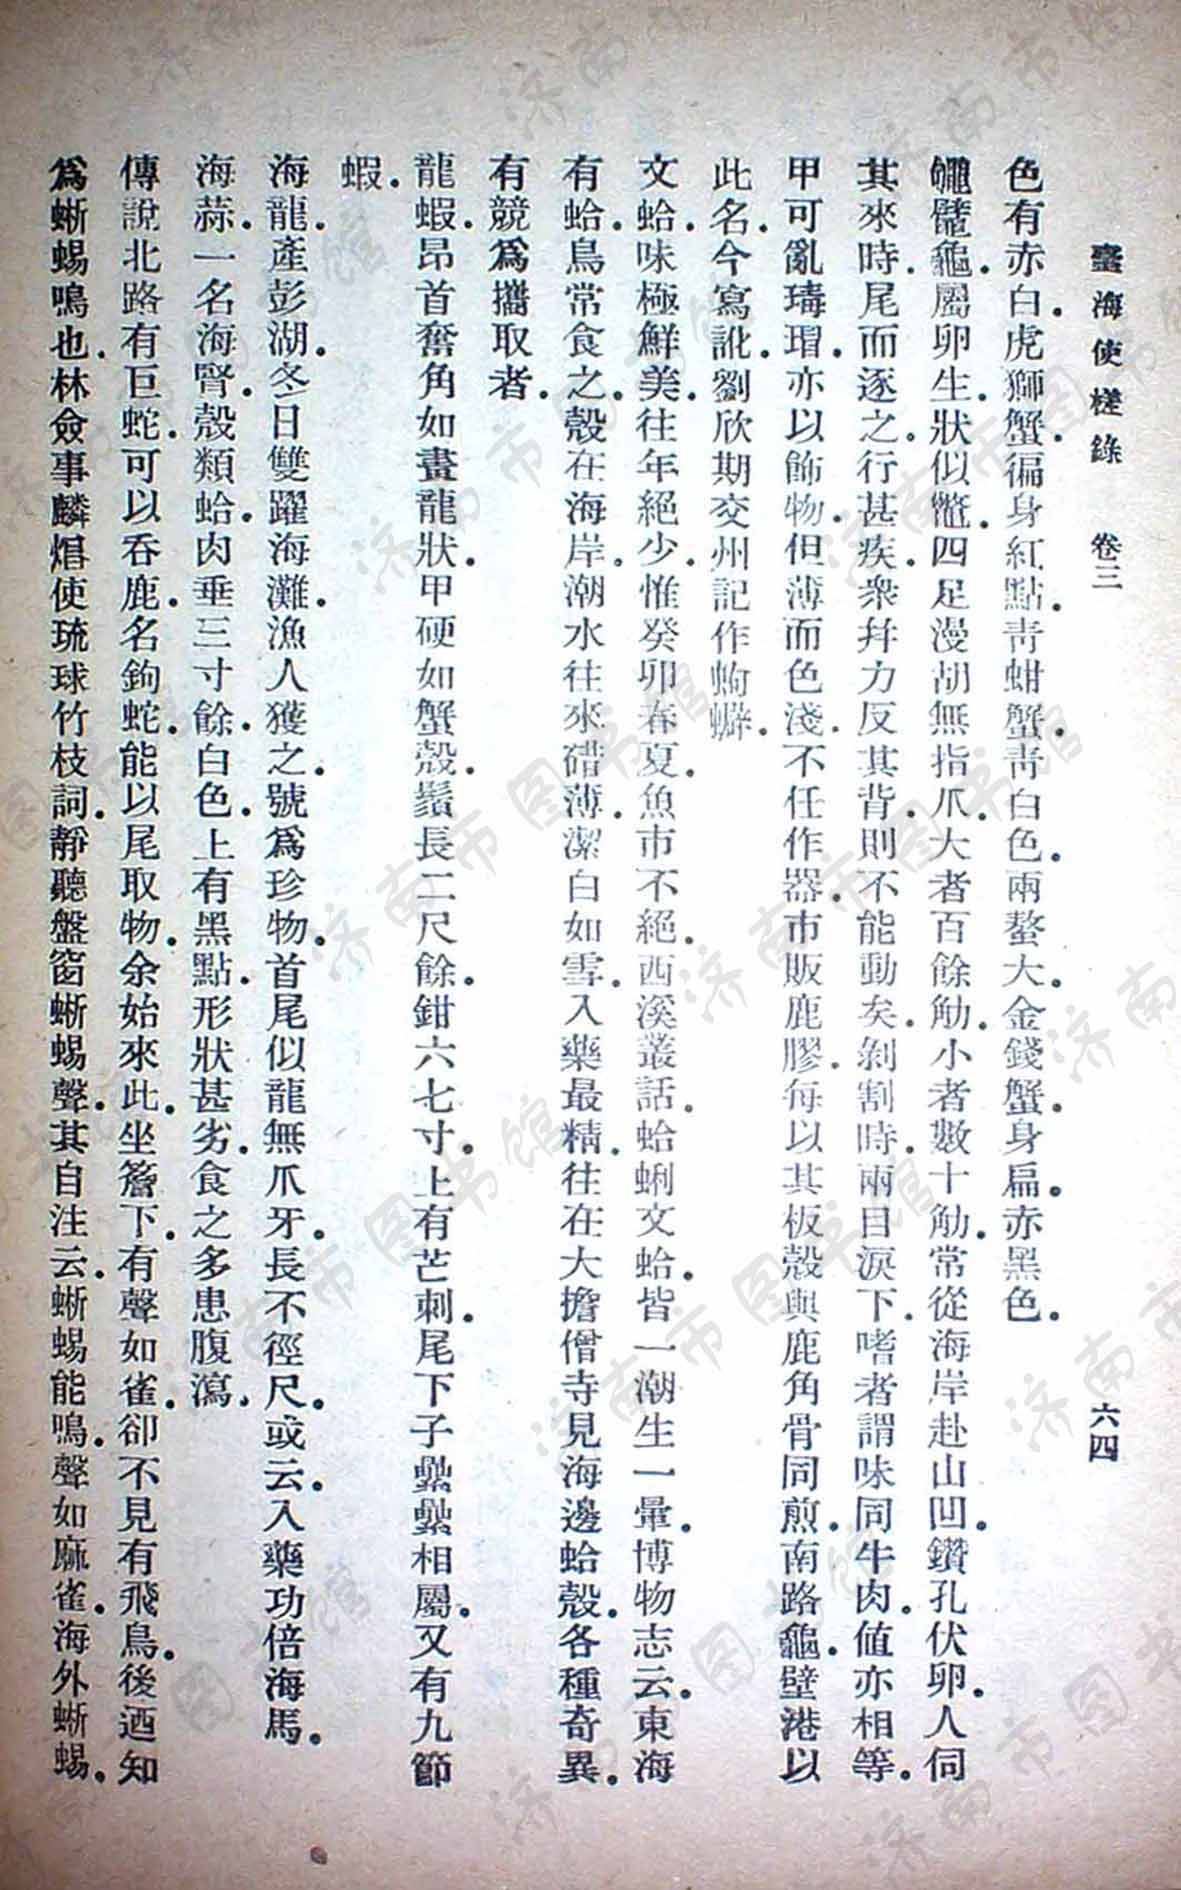 臺海使槎錄　卷三　六四
色有赤白．虎獅蟹．徧身紅點．靑蚶蟹．靑白色．兩螯大．金錢蟹．身扁．赤黑色．
龜屬．卵生．狀似鼈．四足漫胡無指爪．大者百餘觔．小者數十觔．常從海岸赴山凹．鑽孔伏卵．人伺
其來時．尾而逐之．行甚疾．衆幷力反其背．則不能動矣．剝割時．兩目淚下．嗜者謂味同牛肉．値亦相等．
甲可亂瑇瑁．亦以飾物．但薄而色淺．不任作器．市販鹿膠．每以其板殼與鹿角骨同煎．南路龜壁港以
此名．今寫訛．劉欣期交州記作蚼蠵．
文蛤．味極鮮美．往年絕少．惟癸卯春夏．魚市不絕．西溪叢話．蛤蜊文蛤．皆一潮生一暈．博物志云．東海
有蛤．鳥常食之．殼在海岸．潮水往來碏薄．潔白如雪．入藥最精．往在大擔僧寺見海邊蛤殼．各種奇異．
有競爲攜取者．
龍蝦．昂首奮角如畫龍狀．甲硬如蟹殼．鬚長二尺餘．鉗六七寸．上有芒刺．尾下子纍纍相屬．又有九節
蝦．
海龍．產彭湖．冬日雙躍海灘．漁人獲之．號爲珍物．首尾似龍．無爪牙．長不徑尺．或云．入藥功倍海馬．
海蒜．一名海腎．殼類蛤．肉垂三寸餘．白色．上有黑點．形狀甚劣．食之多患腹瀉．
傳說北路有巨蛇．可以吞鹿．名鉤蛇．能以尾取物．余始來此．坐簷下．有聲如雀．卻不見有飛鳥．後迺知
爲蜥蜴鳴也．林僉事麟焻使琉球竹枝詞．靜聽盤窗蜥蜴聲．其自注云．蜥蜴能鳴．聲如麻雀．海外蜥蜴．